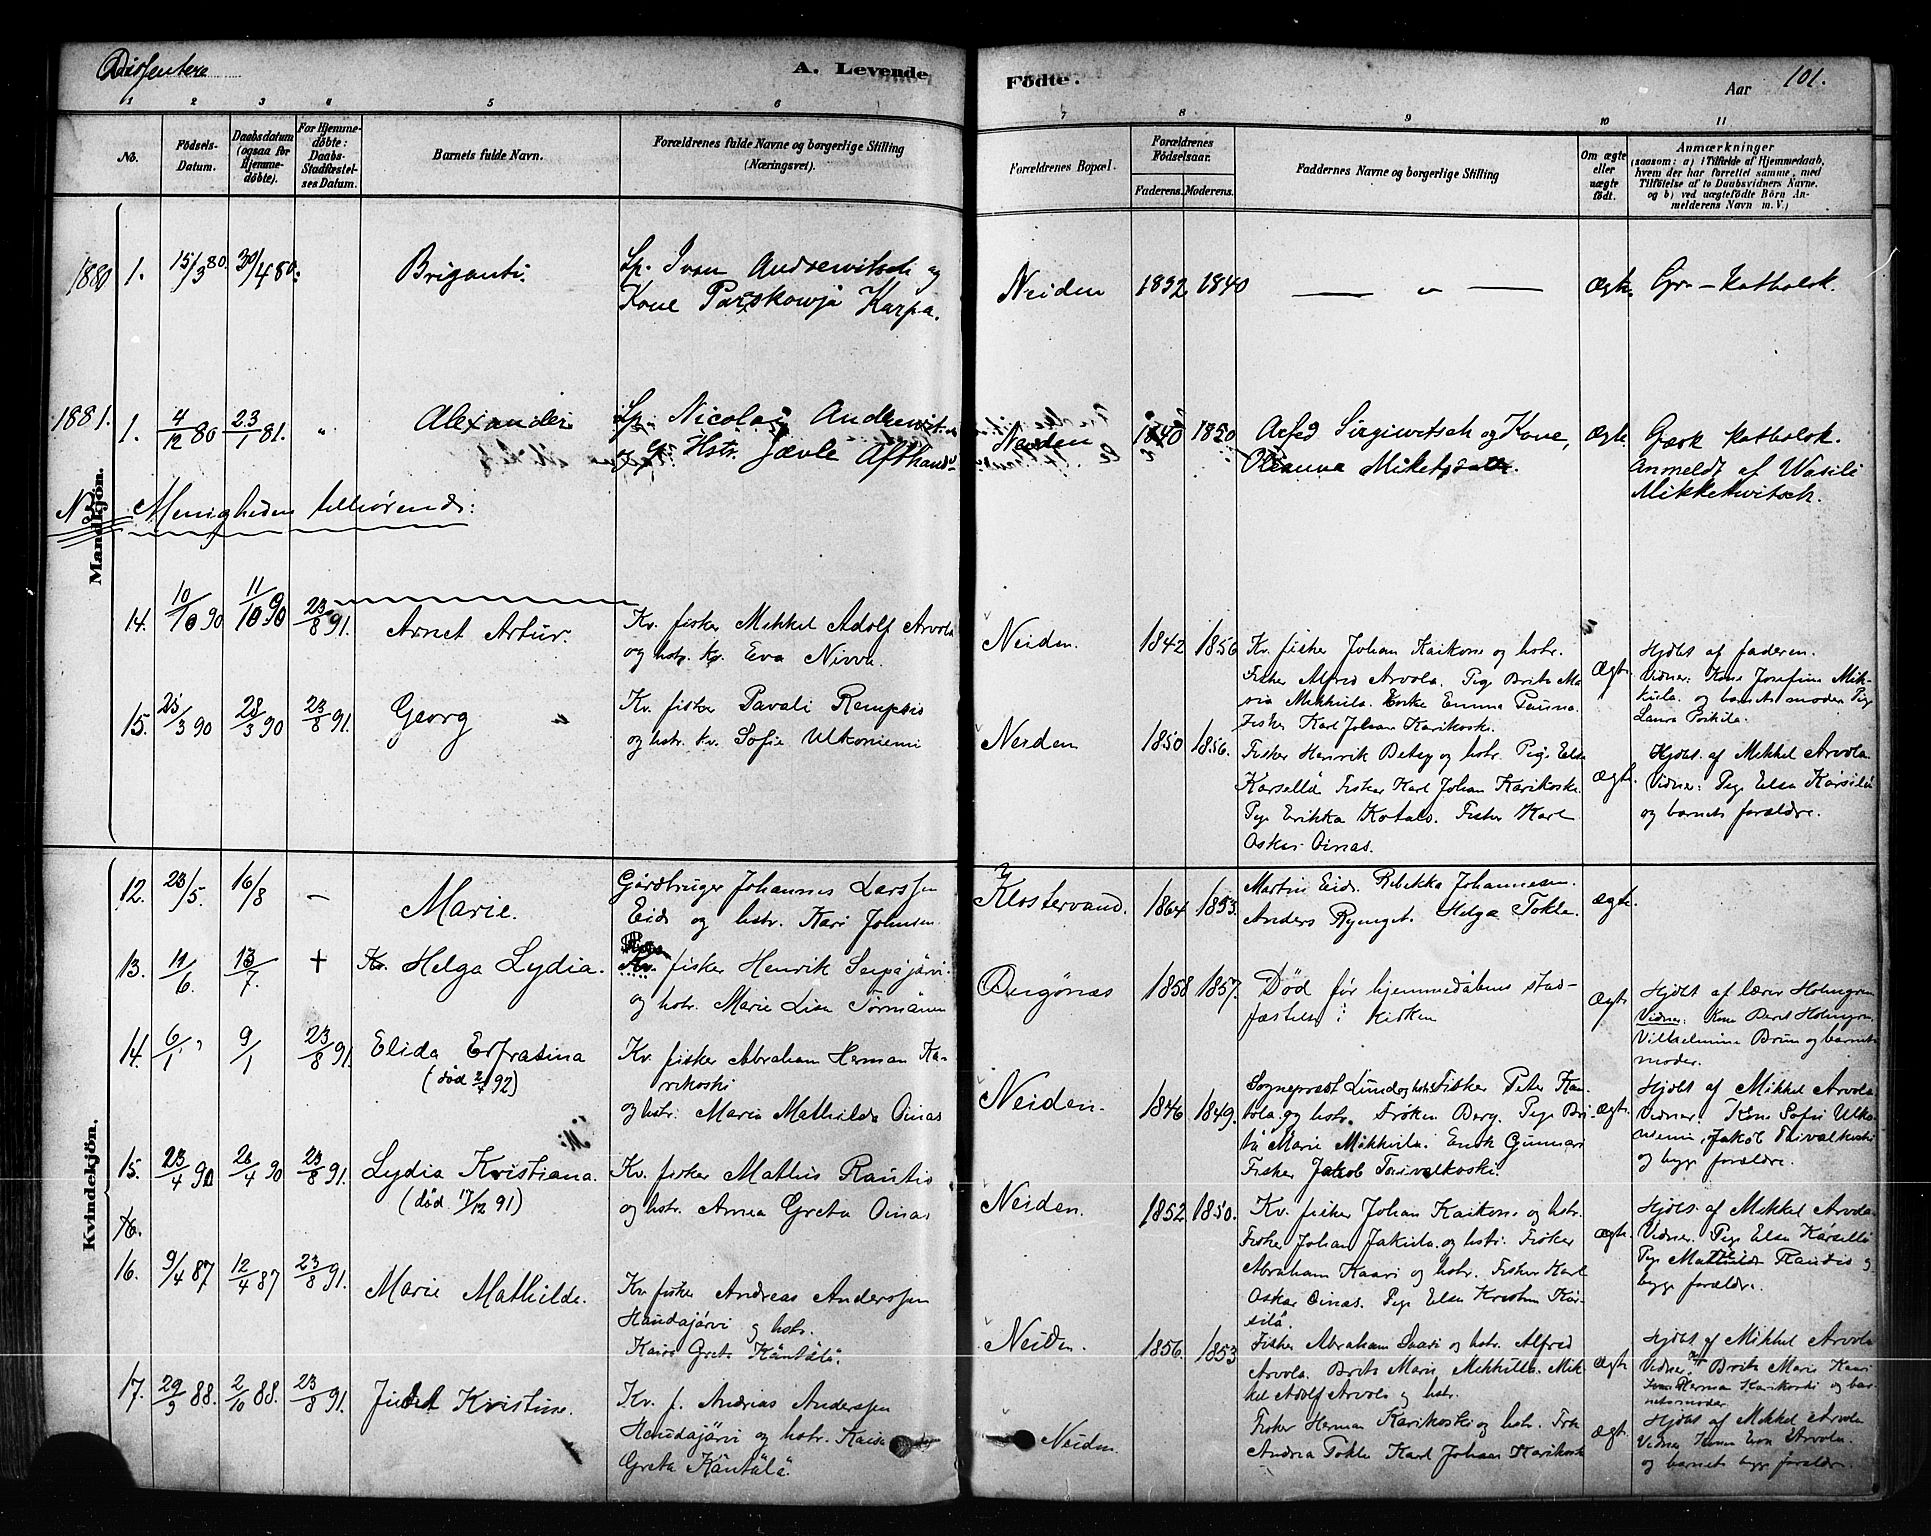 Dissentere
A. Levende
Födte.
Aar
101.
1 2 3 4 5 6 7 8 9 10 11
No.
Födsels-
Datum.
Daabsdatum
(ogsaa for
Hjemme-
döbte).
For Hjemme-
döbte:
Daabs-
Stadfæstel-
ses Datum.
Barnets fulde Navn.
Forældrenes fulde Navne og borgerlige Stilling
(Næringsvei).
Forældrenes Bopæl.
Forældrenes
Födselsaar.
Faderens. Moderens.
Faddernes Navne og borgerlige Stilling
Om ægte
eller
uægte
födt.
Anmærkninger
(saasom: a) i Tilfælde af Hjemmedaab,
hvem der har forrettet samme, med
Tilföielse af to Daabsvidners Navne.
og b) ved uægtefödte Börn An-
melderens Navn m. V.)
1880 1. 15/3 80. 30/4 80. Briganti. Lp. Ivan Andrewitsch og
Kone Parskowja Karpa.
Neiden 1832 1840 — " — Ægte. Gr.-katholsk.
1881. 1. 4/12 80 23/1 81. " Alexander Lp. Nicolai
og Hstr. Jævle
Neiden 1840 1850 Sirgiwitsch og Kone, Ægte Græsk katholsk.
Anmeldt af Wasili
Mikkelwitsch.
Mandkjön.
Menigheden tilhörende:
14. 10/10 90 11/10 90 23/8 91. Arnet Artur. Kv. fisker Mikkel Adolf Arvola
og hstr. kv. Eva Nivva.
Neiden. 1842 1856 Kv. fisker Johan Kaikone og hstr.
Fisker Alfred Arvola. Pige Brita Ma-
ria Mikkula. Enke Emma Pauna.
Fisker Karl Johan Karikoski.
Ægte. Hjdbt af faderen.
Vidner: Kone Josefine Mik-
kula. og barnets moder Pige
Laura
15. 23/3 90 28/3 90 23/8 91. Georg Kv. fisker Pavali Rempsis
og hstr. kv. Sofie Ulkoniemi
Neiden 1850 1856. Fisker Henrik Betsy og hstr. Pige Elsa
Karsellä Fisker Karl Johan Karikoski.
Pige Erikka Kotals. Fisker Karl
Oskar Oinas.
Ægte. Hjdbt. af Mikkel Arvola
Vidner: Pige Elsa Karsilä
og barnets forældre.
Kvindekjön.
12. 23/5. 16/8 — Marie. Gårdbruger Johannes Larssen
Eide og hstr. Kari Johnsen.
Klostervand. 1864 1853. Martin Eide. Rebekka Johannesen.
Anders Rynget. Helga Tokle.
Ægte.
13. 11/6. 13/7. + Kv. Helga Lydia. fisker Henrik Seipäjärvi
og hstr. Marie Lisa Törmänen
Bugönæs 1858 1857. Död før hjemmedåbens stad-
fæstelse i kirken
Ægte Hjdbt af lærer Holmgren
Vidner: Kone Berit Holmgren
Vilhelmine Brun og barnets
moder.
14. 6/1 9/1 23/8 91. Elida Erfrasina
(död 2/4 92)
Kv. fisker Abraham Herman Ka-
rikoski
og hstr. Maria Mathilde Oinas
Neiden. 1846 1849. Sogneprest Lund og hstr. Fisker Peter Kau-
og hstr. Fröken Berg. Pige Bri-
ta Marie Mikkila. Enok Gunnari
Fisker Jakob Taivalkoski.
Ægte. Hjdbt af Mikkel Arvola
Vidner: Kone Sofie Ulko-
niemi, Jakob Taivalkoski
og begge forældre.
15. 23/4 90 26/4 90 23/8 91. Lydia Kristiana.
(död. 17/12 91)
Kv. fisker Mathis Rautio
og hstr. Anna Greta Oinas
Neiden. 1852 1850. Kv. fisker Johan Kaikone og hstr.
Fisker Johan Jakula. og hstr. Fisker
Abraham Kaari og hstr. Fisker Karl
Oskar Oinas. Pige Elsa Kristine Kar-
silä.
Ægte. Hjdbt. af Mikkel Arvola
Vidner. Pige Elsa Karsellä
Pige Mathilde Rautio og
begge forældre.
16.
16. 9/4 87 12/4 87 23/8 91. Marie Mathilde. Kv. fisker Andreas Anderssen
Haudajärvi og hstr.
Kaisa Greta Käntälä.
Neiden. 1856. 1853 Fisker Abraham Saari og hstr. Alfred
Arvola. Brita Marie Mikkila. Mik-
kel Adolf Arvola og hstr.
Ægte. Hjdbt af Mikkel Arvola
Vidner: Brita Marie Kaari
Herman Karikoski og bar-
nets moder
17. 29/9 88. 2/10 88. 23/8 91. Judet Kristine. Kv. f. Andreas Anderssen
Haudajärvi og hstr. Kaisa
Greta Käntälä.
Neiden. Fisker Herman Karikoski og hstr. Frk
Andrea Tokle Karl Johan Karikoski
Ægte. Hjdbt af Mikkel Arvola
Vidner Kone Eva Arvola.
og barnets begge forældre.